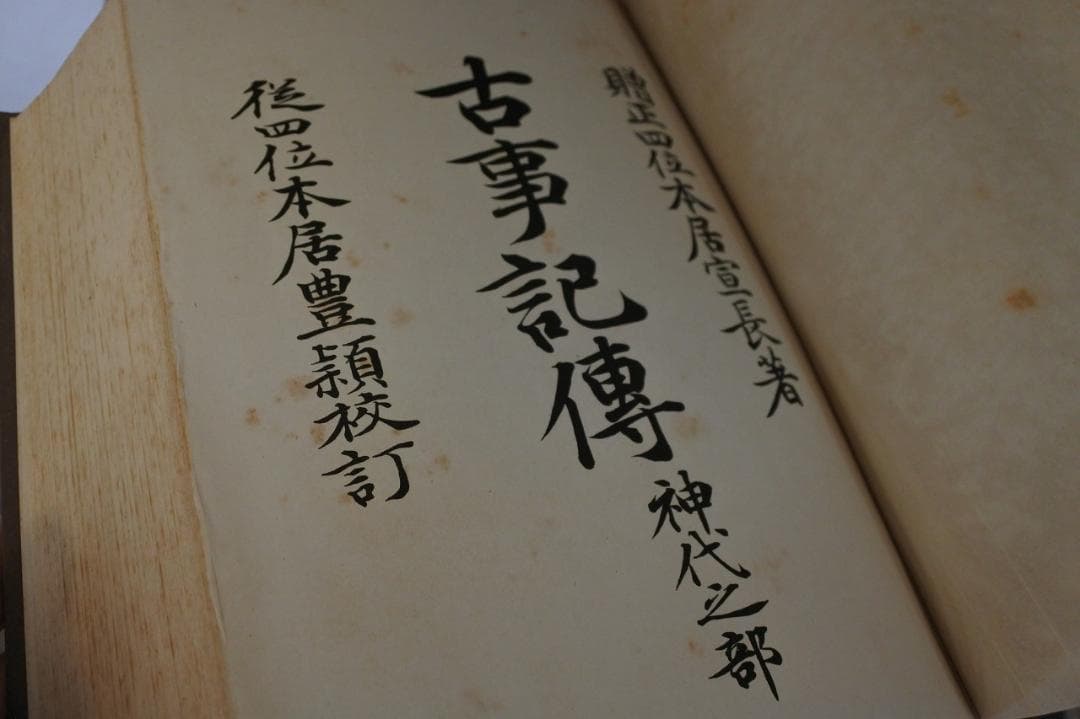 贈正四位本居宣長著
古事記傳神代之部
從四位本居豊頴校訂